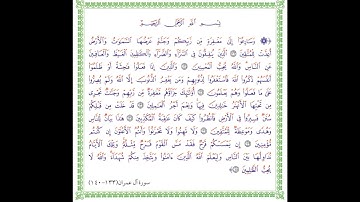 بِسْمِ اللَّهِ الرَّحْمَٰنِ الرَّحِيمِ
وَسَارِعُوا إِلَىٰ مَغْفِرَةٍ مِّن رَّبِّكُمْ وَجَنَّةٍ عَرْضُهَا السَّمَٰوَٰتُ وَالْأَرْضُ
أُعِدَّتْ لِلْمُتَّقِينَ ۝ الَّذِينَ يُنفِقُونَ فِي السَّرَّاءِ وَالضَّرَّاءِ وَالْكَٰظِمِينَ الْغَيْظَ وَالْعَافِينَ
عَنِ النَّاسِ وَاللَّهُ يُحِبُّ الْمُحْسِنِينَ ۝ وَالَّذِينَ إِذَا فَعَلُوا فَٰحِشَةً أَوْ ظَلَمُوا
أَنفُسَهُمْ ذَكَرُوا اللَّهَ فَاسْتَغْفَرُوا لِذُنُوبِهِمْ وَمَن يَغْفِرُ الذُّنُوبَ إِلَّا اللَّهُ وَلَمْ يُصِرُّوا
عَلَىٰ مَا فَعَلُوا وَهُمْ يَعْلَمُونَ ۝ أُولَٰئِكَ جَزَاؤُهُم مَّغْفِرَةٌ مِّن رَّبِّهِمْ وَجَنَّٰتٌ تَجْرِي
مِن تَحْتِهَا الْأَنْهَٰرُ خَٰلِدِينَ فِيهَا وَنِعْمَ أَجْرُ الْعَٰمِلِينَ ۝ قَدْ خَلَتْ مِن قَبْلِكُمْ
سُنَنٌ فَسِيرُوا فِي الْأَرْضِ فَانظُرُوا كَيْفَ كَانَ عَٰقِبَةُ الْمُكَذِّبِينَ ۝ هَٰذَا بَيَانٌ لِّلنَّاسِ
وَهُدًى وَمَوْعِظَةٌ لِّلْمُتَّقِينَ ۝ وَلَا تَهِنُوا وَلَا تَحْزَنُوا وَأَنتُمُ الْأَعْلَوْنَ إِن كُنتُم
مُّؤْمِنِينَ ۝ إِن يَمْسَسْكُمْ قَرْحٌ فَقَدْ مَسَّ الْقَوْمَ قَرْحٌ مِّثْلُهُ وَتِلْكَ الْأَيَّامُ
نُدَاوِلُهَا بَيْنَ النَّاسِ وَلِيَعْلَمَ اللَّهُ الَّذِينَ ءَامَنُوا وَيَتَّخِذَ مِنكُمْ شُهَدَاءَ وَاللَّهُ لَا
يُحِبُّ الظَّٰلِمِينَ ۝
سورة آل عمران (١٣٣-١٤٠)